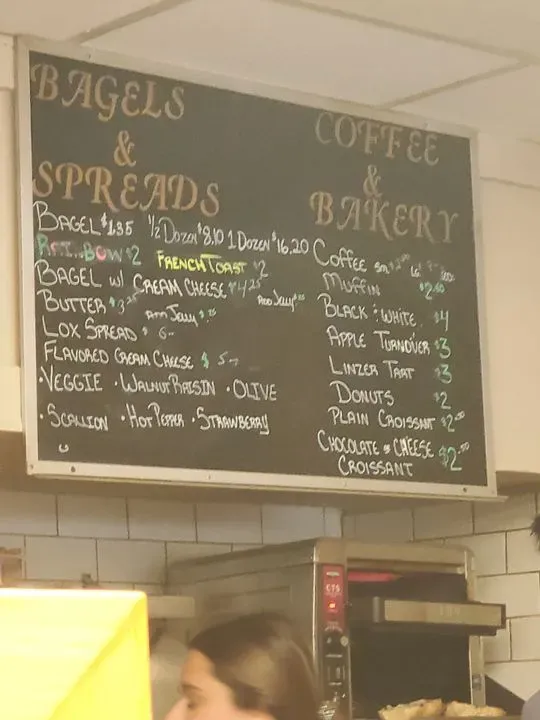 BAGELS
&
SPREADS
BAGEL $1.35 1/2 DOZEN $8.10 1 DOZEN $16.20
RAINBOW $2 FRENCH TOAST $2
BAGEL w/ CREAM CHEESE $4.25
BUTTER $3.25 ADD JELLY
LOX SPREAD $6-
FLAVORED CREAM CHEESE $5-
•VEGGIE •WALNUT RAISIN •OLIVE
•SCALLION •HOT PEPPER •STRAWBERRY
COFFEE
&
BAKERY
COFFEE Sm LG
MUFFIN
BLACK & WHITE $4
APPLE TURNOVER $3
LINZER TART $3
DONUTS $2
PLAIN CROISSANT $2.00
CHOCOLATE & CHEESE
CROISSANT $2.50
CTS